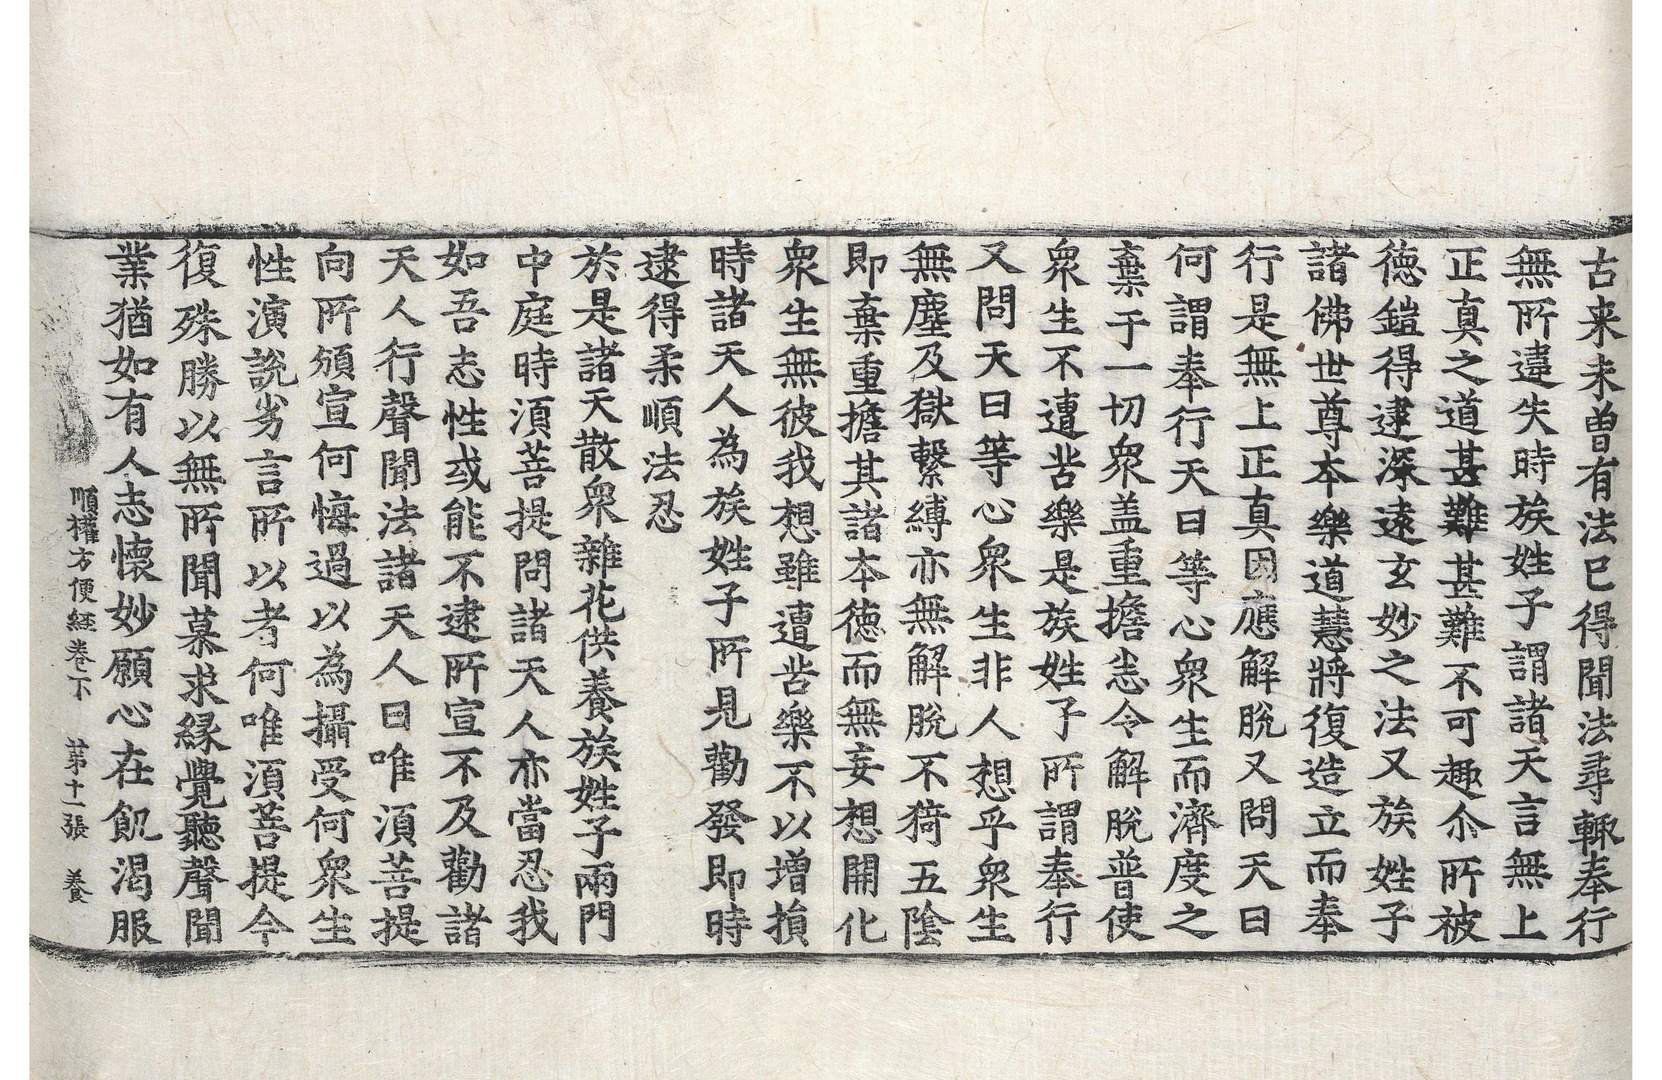 古来未曽有法已得聞法尋輙奉行
無所違失時族姓子謂諸天言無上
正真之道甚難甚難不可趣尒所被
徳鎧得逮深遠玄妙之法又族姓子
諸佛世尊本樂道慧將復造立而奉
行是無上正真因應解脫又問天曰
何謂奉行天曰等心衆生而濟度之
棄于一切衆盖重擔恙令解脫普使
衆生不遭苦樂是族姓子所謂奉行
又問天曰等心衆生非人想乎衆生
無塵及獄繫縛亦無解脫不猗五陰
即棄重擔其諸本徳而無妄想開化
衆生無彼我想雖遭苦樂不以增損
時諸天人為族姓子所見勸發即時
逮得柔順法忍
於是諸天散衆雜花供養族姓子兩門
中庭時湏菩提問諸天人亦當忍我
如吾志性或能不逮所宣不及勸諸
天人行聲聞法諸天人曰唯湏菩提
向所頒宣何悔過以為攝受何衆生
性演說劣言所以者何唯湏菩提今
復殊勝以無所聞慕求緣覺聽聲聞
業猶如有人志懷妙願心在飢渴服
順權方便経卷下 第十一張 養